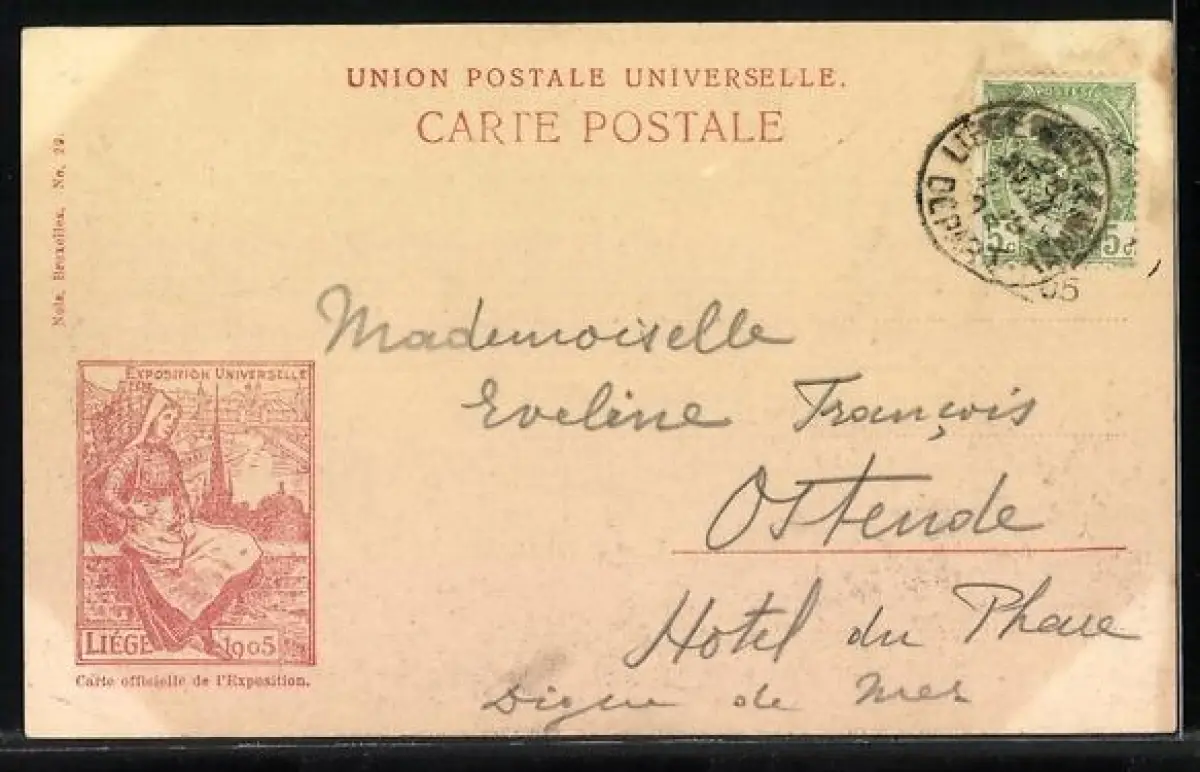 UNION POSTALE UNIVERSELLE.
CARTE POSTALE
Nels, Bruxelles, No. 29.
POSTES
5c 5c
LIÉGE
DEPART
05
Mademoiselle
Eveline François
Ostende
Hotel du Phare
Digue de mer
EXPOSITION UNIVERSELLE
LIÉGE 1905
Carte officielle de l'Exposition.